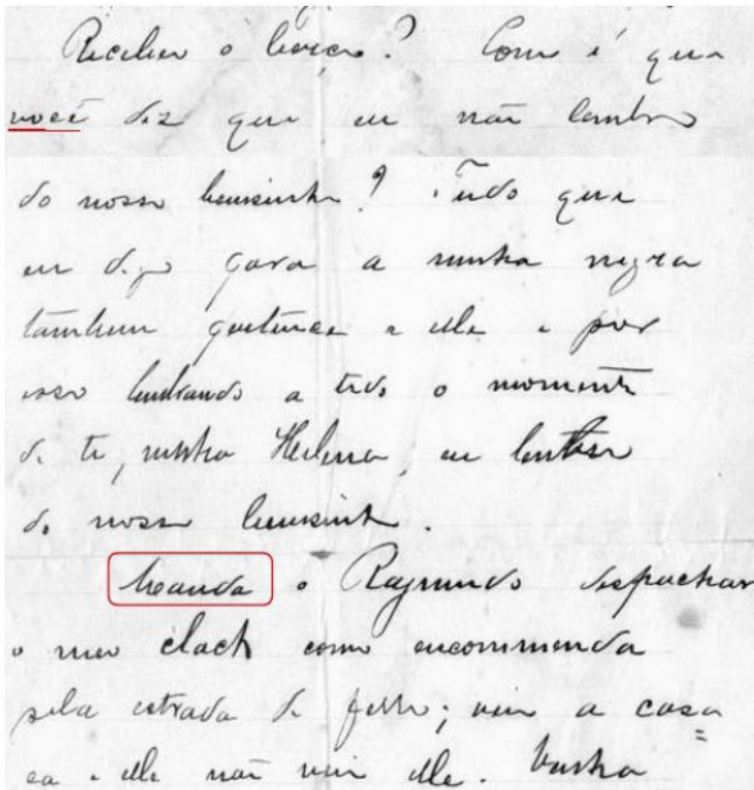 Recebeu o berço? Como é que
você diz que eu não lembro
do nosso bemsinho? Tudo que
eu digo para a minha negra
tambem pertence a elle e por
isso lembrando a todo o momento
de ti, minha Helena, eu lembro
do nosso bemsinho.
Manda o Raymundo despachar
o meu clack como encommenda
pela estrada de ferro; vem a casa
e elle não vem elle.